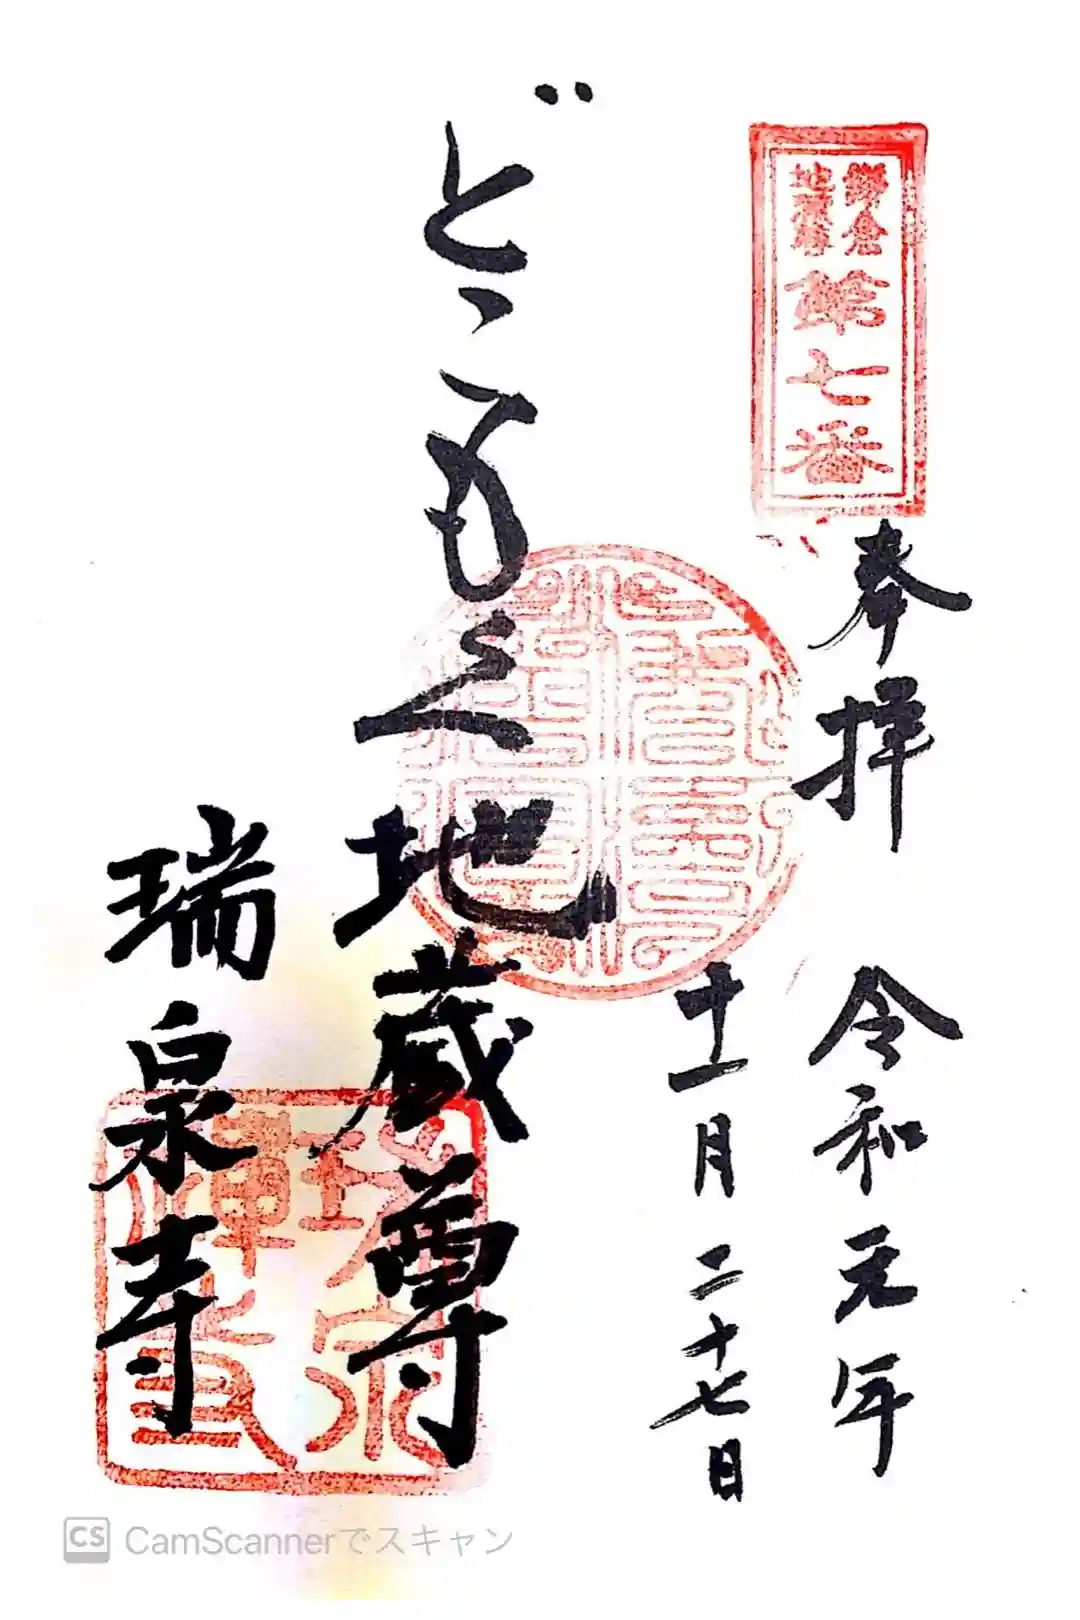 鎌倉
地蔵尊
第七番
奉拝 令和元年
十一月二十七日
どこもく地蔵尊
瑞泉寺
CS CamScannerでスキャン